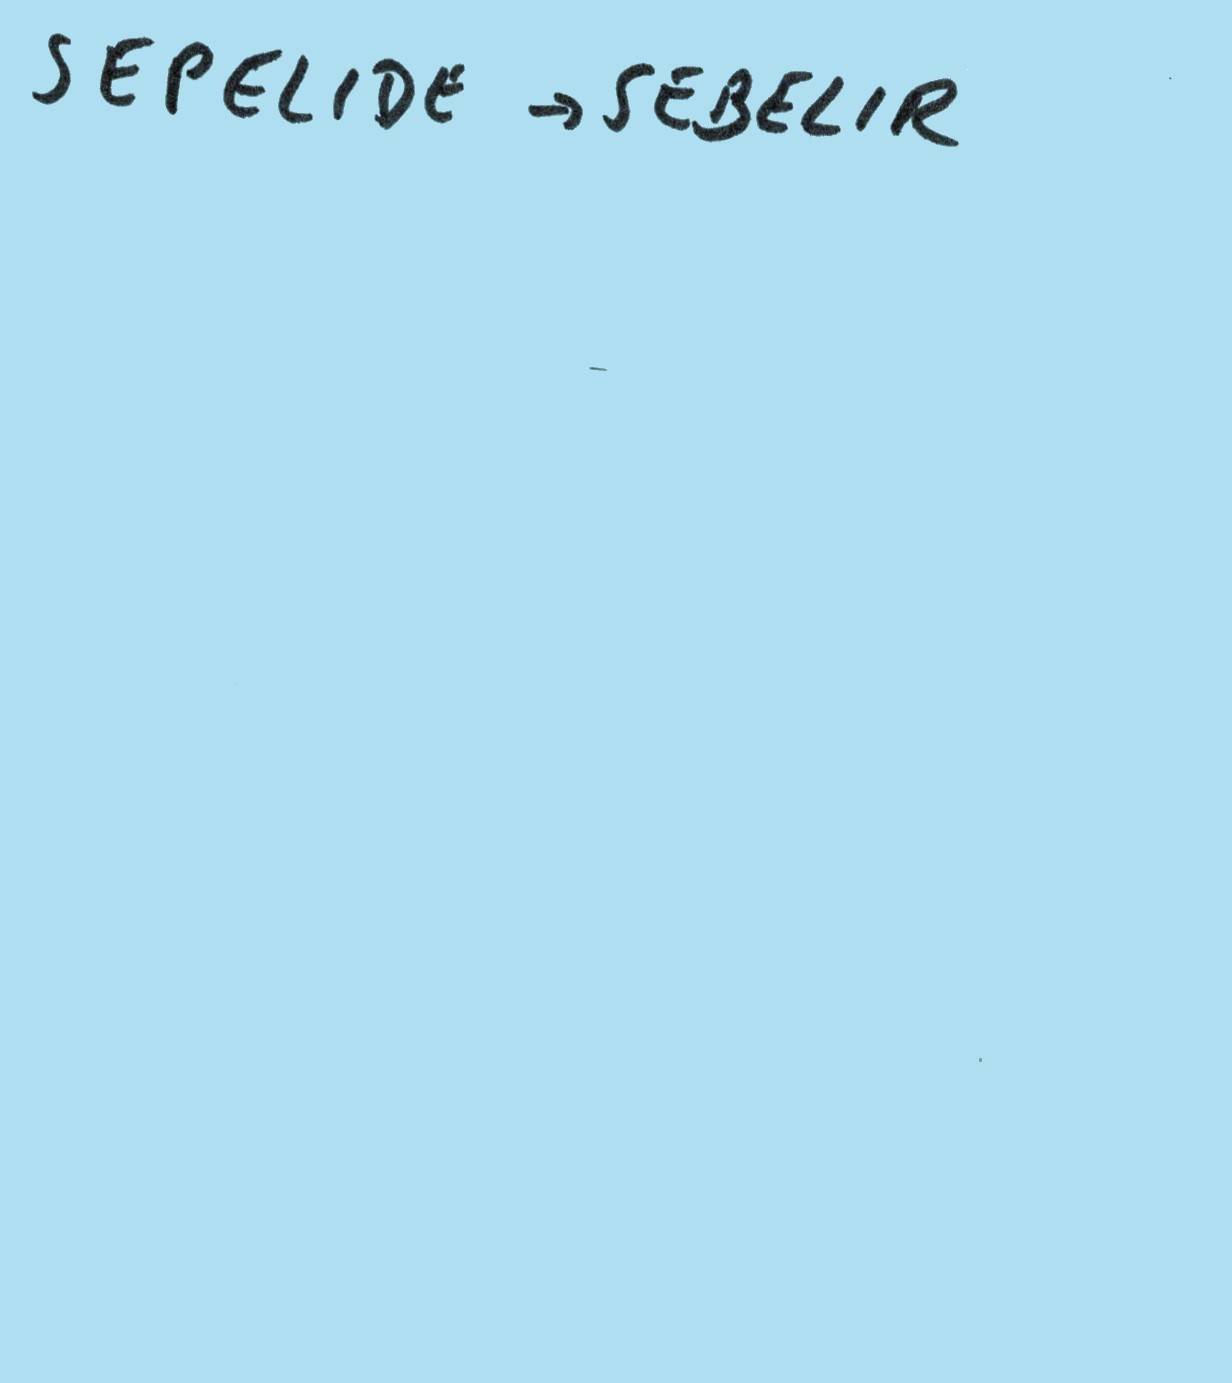 SEPELIDE → SEBELIR